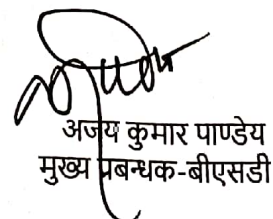 अजय कुमार पाण्डेय
मुख्य प्रबन्धक-बीएसडी